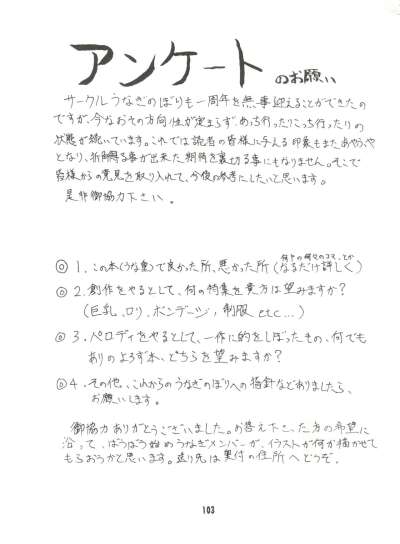 アンケート のお願い
サークルうなぎのぼりも一周年を無事迎えることができたの
ですが、今なおその方向性が定まらず、あっち行ったりこっち行ったりの
状態が続いています。これでは読者の皆様に与える印象もまたあやふや
となり、折角 事が出来た期待を裏切る事にもなりません。そこで
皆様からの意見を取り入れて、今後の参考にしたいと思います。
是非御協力下さい。
◎1. この本(うな重)で良かった所、悪かった所(なるだけ詳しく)
何ページの コマ、とか
◎2. 創作をやるとして、何の特集を貴方は望みますか?
(巨乳、ロリ、ボンデージ、制服 etc...)
◎3. パロディをやるとして、一作に的をしぼったもの、何でも
ありのよろず本、どちらを望みますか?
◎4. その他、これからのうなぎのぼりへの指針などありましたら、
お願いします。
御協力ありがとうございました。お答え下さった方の希望に
沿って、ぼうぼう始めうなぎメンバーが、イラストが何か描かせて
もらおうかと思います。送り先は奥付の住所へどうぞ。
103